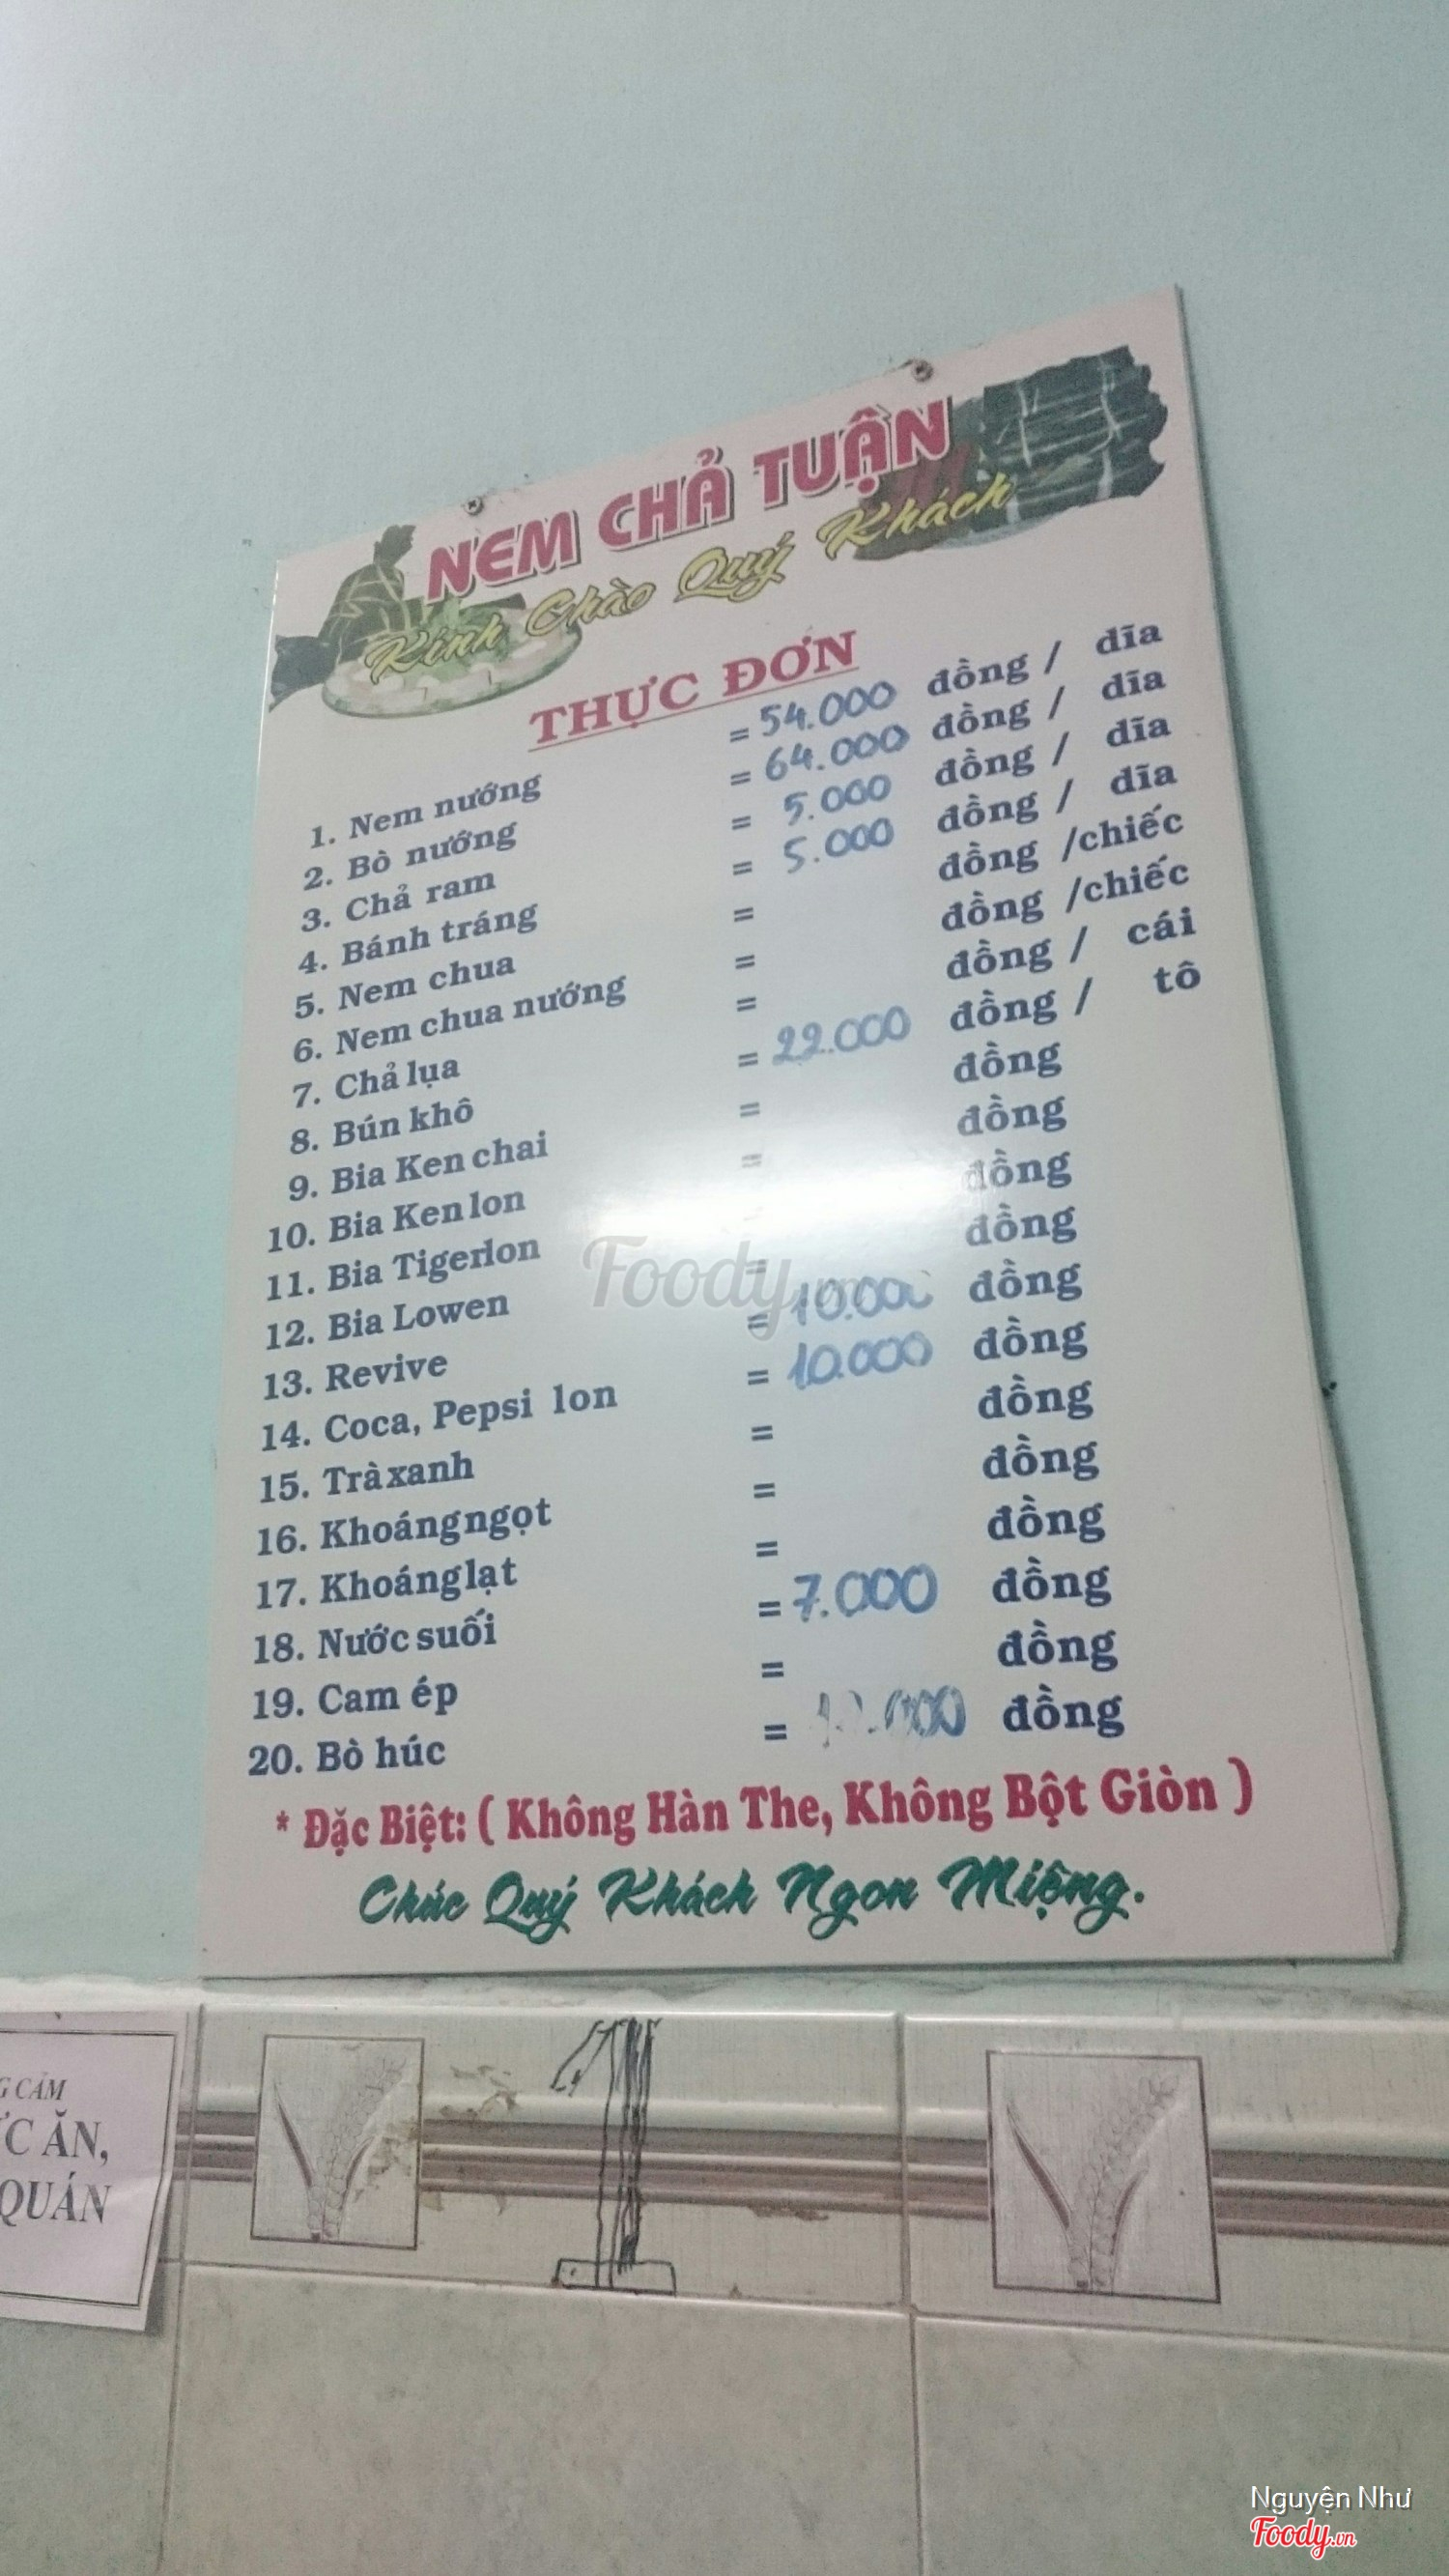 NEM CHẢ TUẬN
Kính Chào Quý Khách
THỰC ĐƠN
1. Nem nướng = 54.000 đồng / dĩa
2. Bò nướng = 64.000 đồng / dĩa
3. Chả ram = 5.000 đồng / dĩa
4. Bánh tráng = 5.000 đồng / dĩa
5. Nem chua = đồng /chiếc
6. Nem chua nướng = đồng /chiếc
7. Chả lụa = đồng / cái
8. Bún khô = 22.000 đồng / tô
9. Bia Ken chai = đồng
10. Bia Ken lon = đồng
11. Bia Tiger lon đồng
12. Bia Lowen = đồng
13. Revive = 10.000 đồng
14. Coca, Pepsi lon = 10.000 đồng
15. Trà xanh = đồng
16. Khoáng ngọt = đồng
17. Khoáng lạt = đồng
18. Nước suối = 7.000 đồng
19. Cam ép = đồng
20. Bò húc = đồng
* Đặc Biệt: ( Không Hàn The, Không Bột Giòn )
Chúc Quý Khách Ngon Miệng.
Foody.vn
CẢM
ĂN,
QUÁN
1
Nguyện Như
Foody.vn